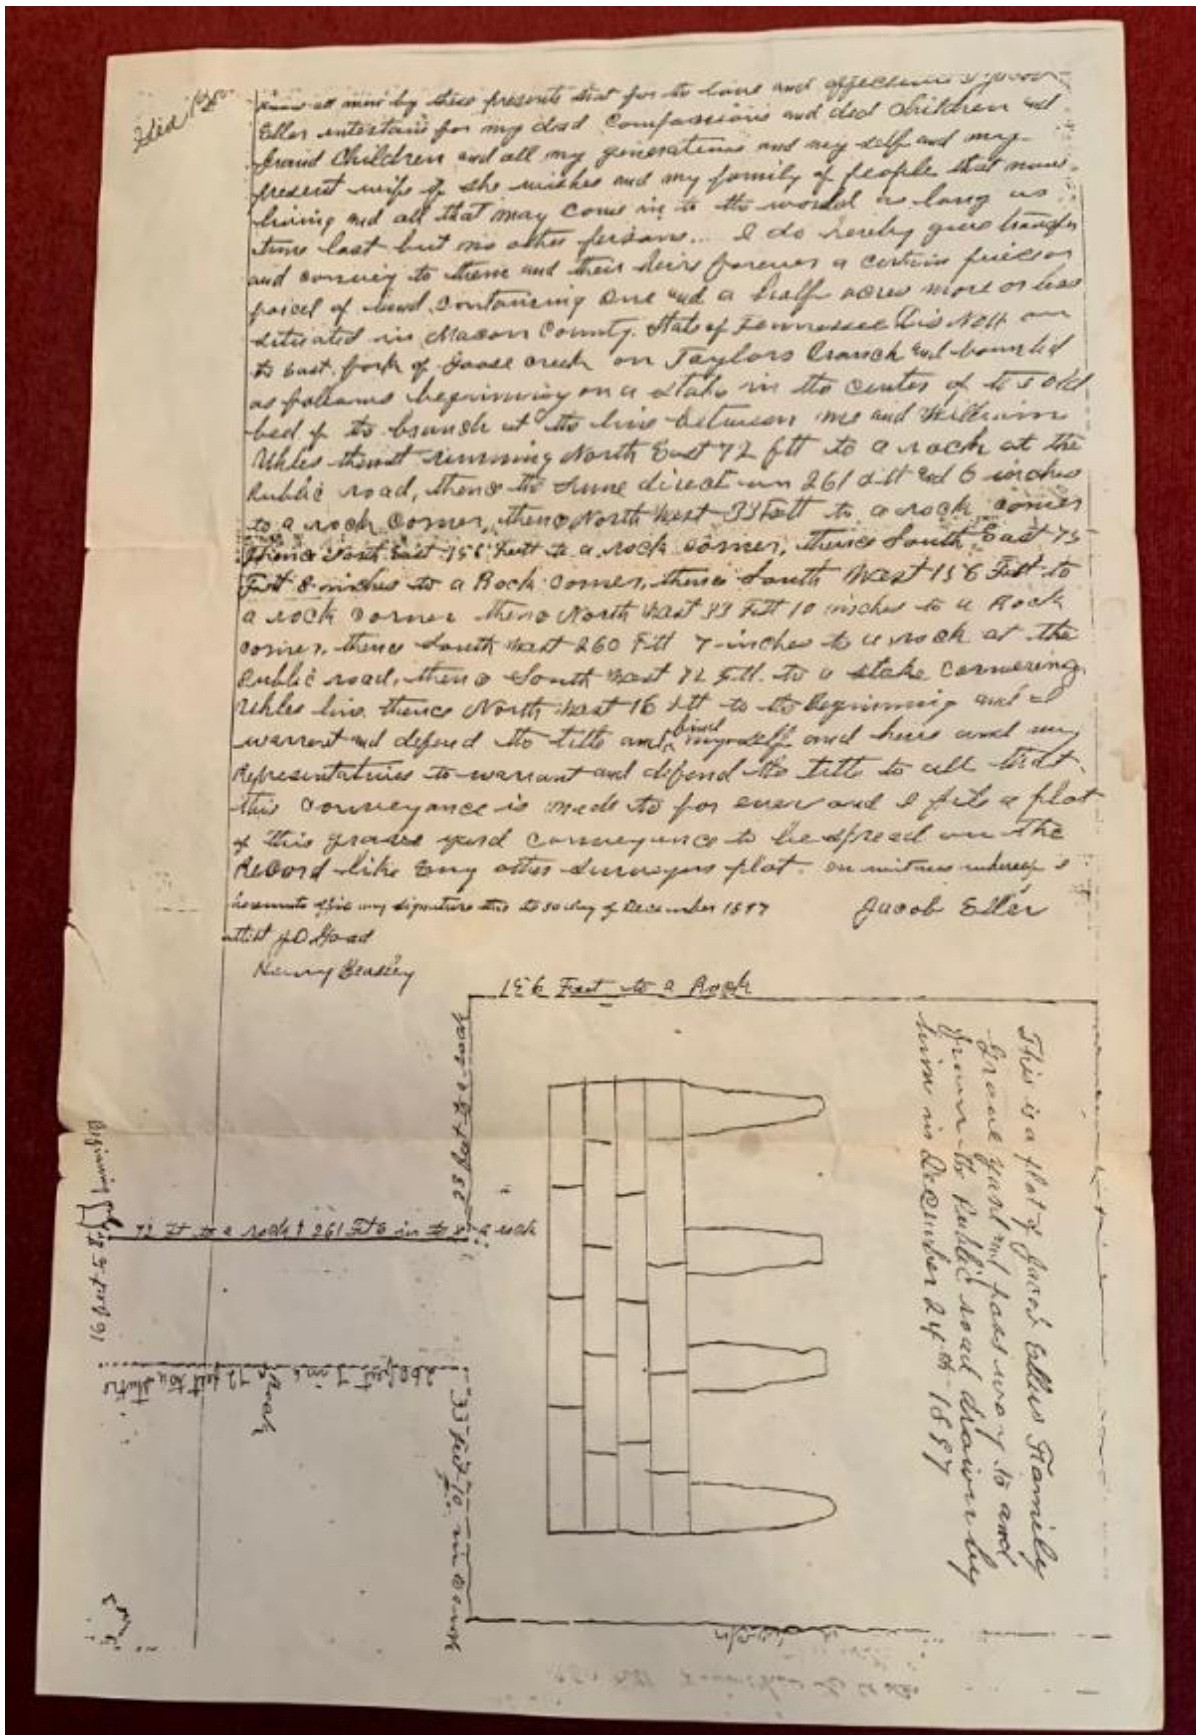 Know all men by these presents that for the love and affection I Jacob
Eller entertain for my ded Companions and ded Children and
grand Children and all my generations and my self and my
present wife if she wishes and my family of people that now
living and all that may come in to the world as long as
time last but no other persons... I do hereby give transfer
and convey to them and their heirs forever a certain piece or
parcel of land containing One and a half acres more or less
situated in Macon County State of Tennessee Dis No 11 on
the East fork of Goose creek on Taylors Branch and bounded
as follows beginning on a stake in the center of the old
bed of the branch at the line between me and William
Uhles thence running North East 72 fett to a rock at the
Public road, thence the same direct on 261 fett and 6 inches
to a rock corner, thence North West 33 Fett to a rock corner
thence North East 156 Fett to a rock corner, thence South East 75
Fett 8 inches to a Rock corner, thence South West 156 Fett to
a rock corner thence North West 33 Fett 10 inches to a Rock
corner, thence South West 260 Fett 7 inches to a rock at the
Public road, thence South West 72 Fett to a stake cornering
Uhles line thence North West 16 fett to the Beginning and I
warrent and defend the title and bind myself and heirs and my
Representatives to warrant and defend the title to all that
this conveyance is made to for ever and I file a plot
of this grave yard conveyance to be spread on the
Record like any other surveyors plot. on witness whereof I
hereunto affix my signature this the 30 day of December 1887
Jacob Eller
attest J D Goad
Henry Beasley
156 Feet to a Rock
This is a plot of Jacob Ellers Family
Grave yard and pass way to and
from the Public road drawn by
him in December 24th 1887
33 feet to a rock
Beginning
72 Ft to a rock & 261 Ft 6 in to a rock
16 feet
260 feet 7 in to
a rock 72 feet to a stake
33 feet 10 in to rock